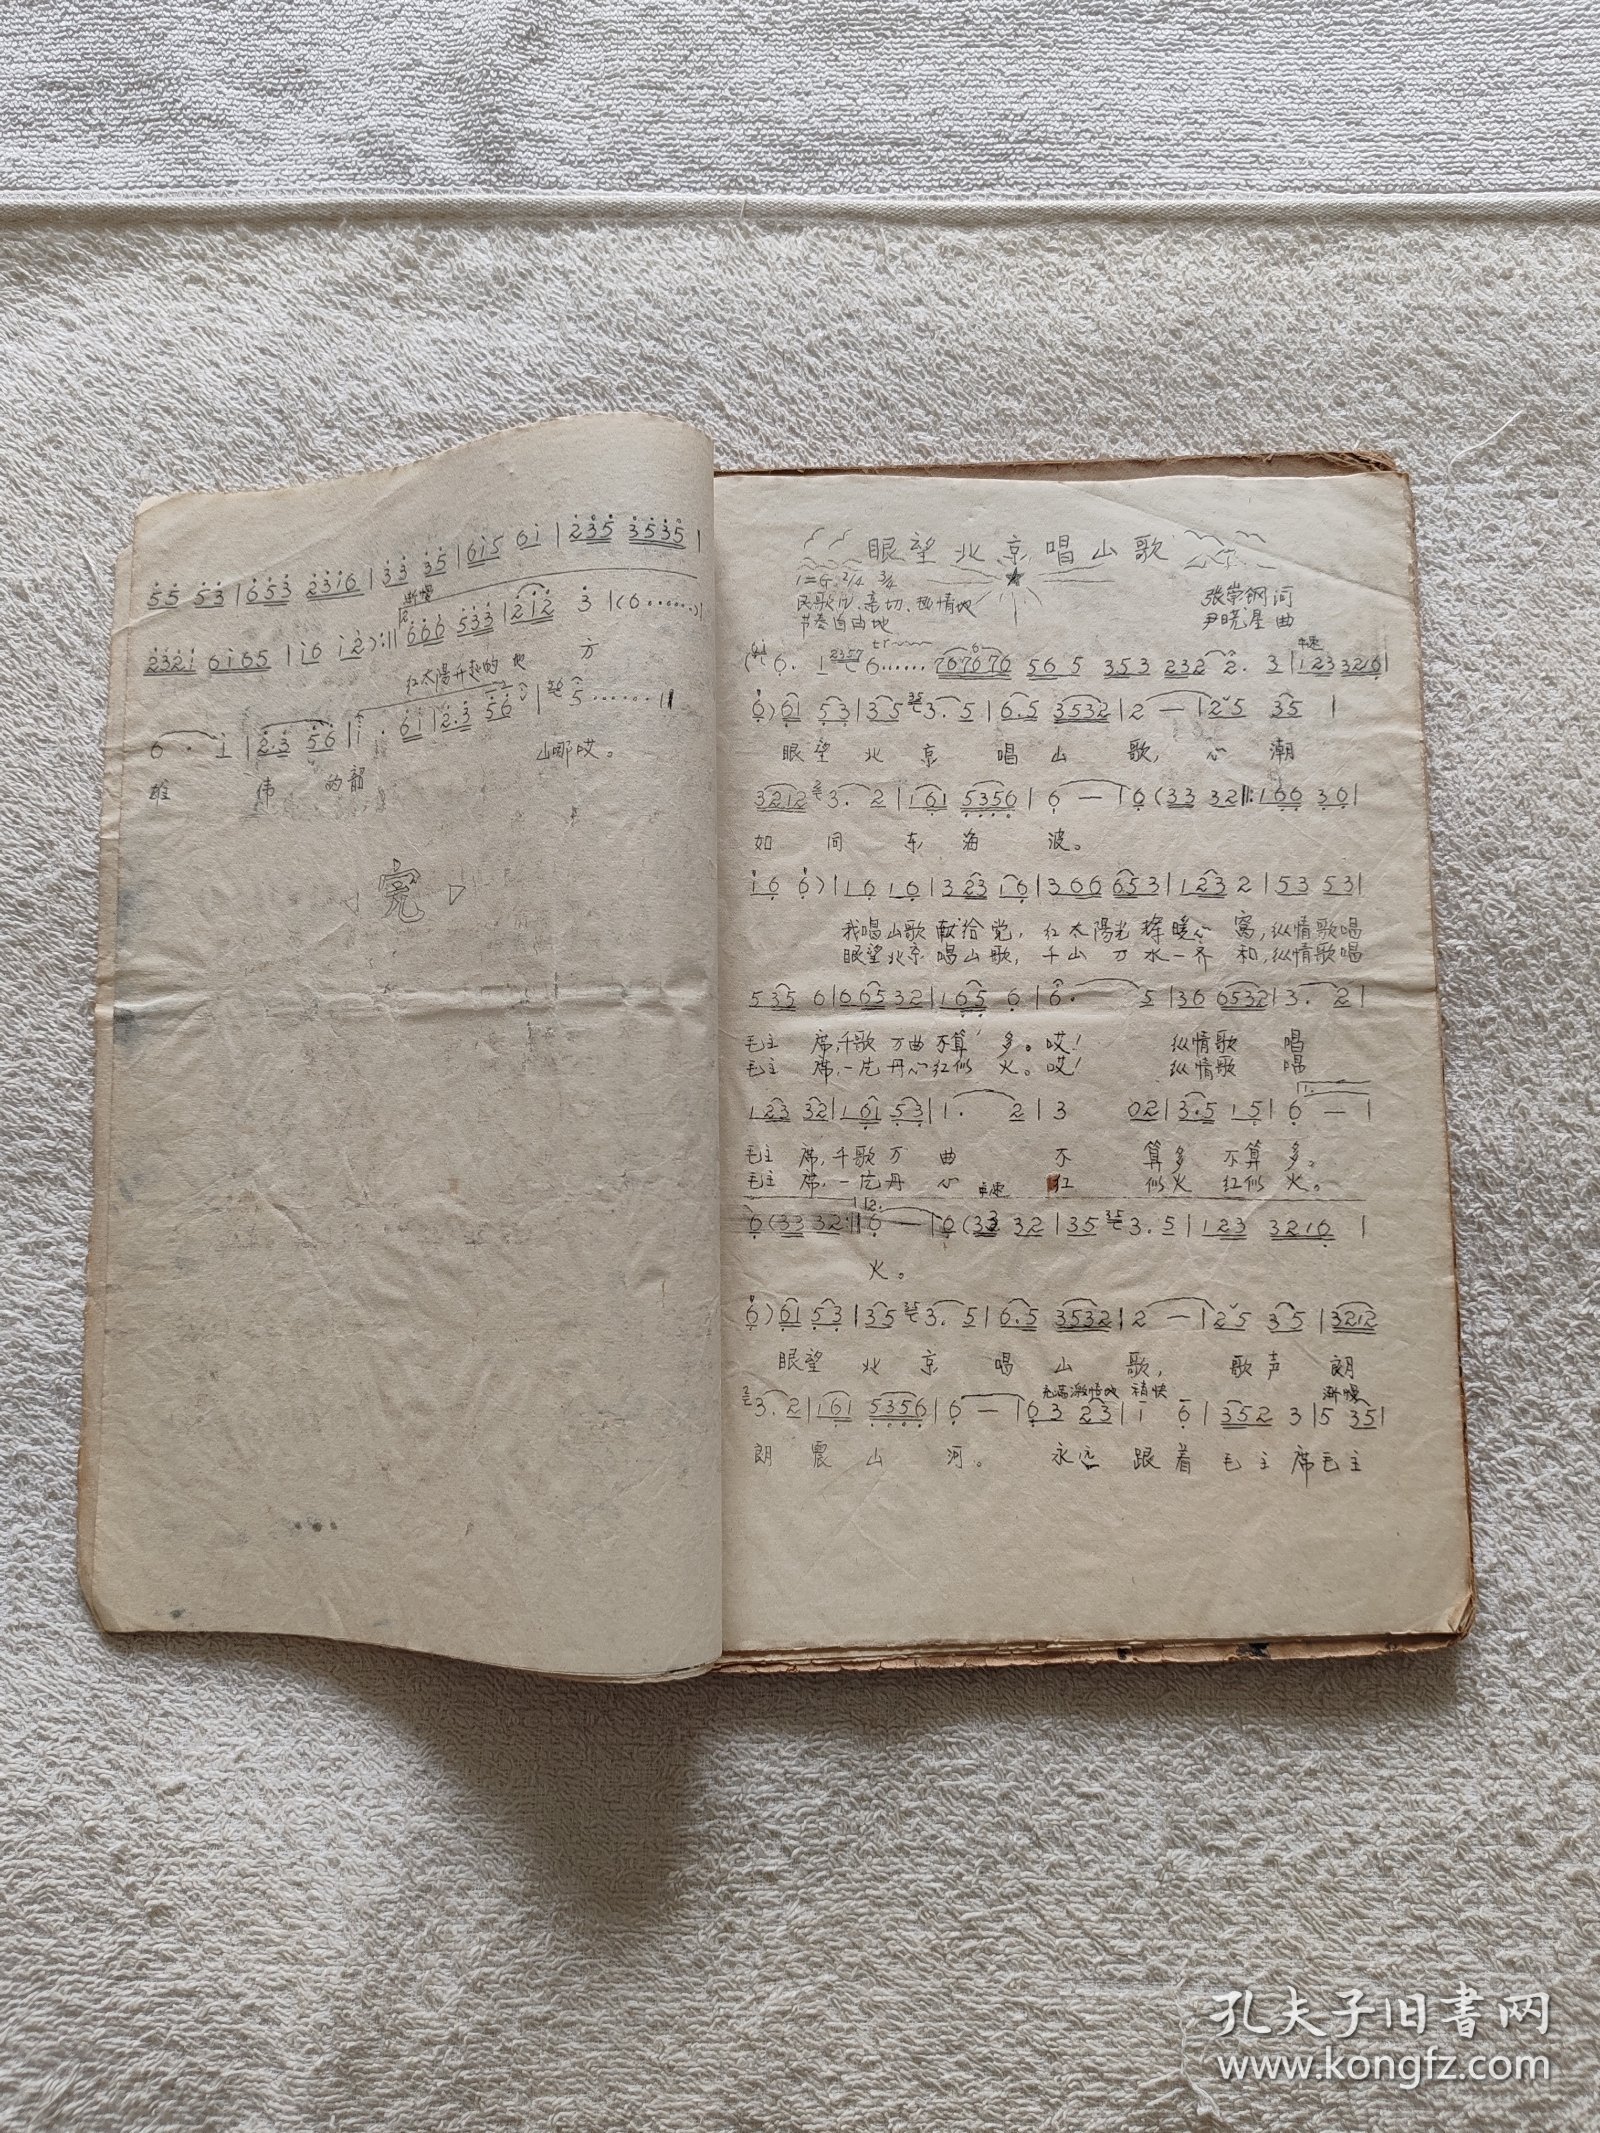 5 5 5 3 | 6 5 3 2 3 1 6 | 3 3 3 5 | 6 1 5 6 1 | 2 3 5 3 5 3 5 |
渐慢
2 3 2 1 6 1 6 5 | 1 6 1 2 ) :|| 6 6 6 5 3 3 | 2 1 2 3 | ( 6 ...... ) |
红太阳升起的地方
6 · 1 | 2·3 5 6 | 1 · 6 1 | 2·3 5 6 | 5 ....... ||
雄伟的韶山哪哎。
眼望北京唱山歌
1=G 2/4 3/4
张崇钢词
亲切、热情地
尹晓星曲
节奏自由地
中速
6) 6 1 5 3 | 3 5 3. 5 | 6.5 3532 | 2 — | 2 5 3 5 |
眼望北京唱山歌,心潮
3212 3. 2 | 1 6 1 5356 | 6 — | 6 (33 32 ||: 166 36 |
如同东海波。
1 6 6 ) | 1 6 1 6 | 3 23 1 6 | 3 6 6 65 3 | 1 23 2 | 5 3 5 3 |
我唱山歌献给党,红太阳光辉暖心窝,纵情歌唱
眼望北京唱山歌,千山万水一齐和,纵情歌唱
5 35 6 | 6 65 32 | 1 65 6 | 6. 5 | 36 6532 | 3. 2 |
毛主席,千歌万曲不算多。哎!纵情歌唱
毛主席,一片丹心红似火。哎!纵情歌唱
1 23 32 | 1 61 53 | 1. 2 | 3 02 | 3.5 1 5 | 6 — |
毛主席,千歌万曲不算多不算多。
毛主席,一片丹心红似火红似火。
中速
6 (33 32 :|| 6 — | 6 (33 32 | 35 3. 5 | 1 23 3216 |
火。
6) 61 53 | 35 3. 5 | 6.5 3532 | 2 — | 2 5 3 5 | 3212
眼望北京唱山歌,歌声朗
充满激情地 稍快 渐慢
3. 2 | 1 61 5356 | 6 — | 6 3 23 | 1 6 | 352 3 | 5 35 |
朗震山河。永远跟着毛主席毛主
孔夫子旧书网
www.kongfz.com